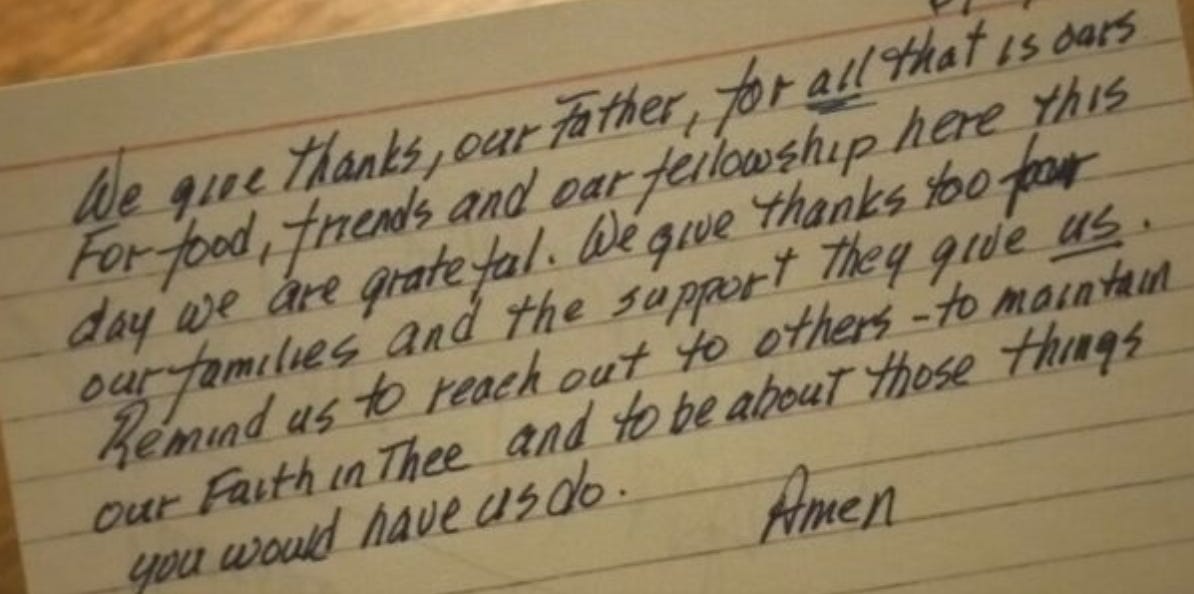 We give thanks, our Father, for all that is ours
For food, friends and our fellowship here this
day we are grateful. We give thanks too for
our families and the support they give us.
Remind us to reach out to others - to maintain
our Faith in Thee and to be about those things
you would have us do.
Amen